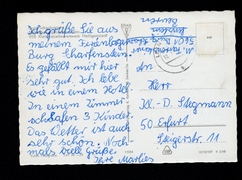 Ich grüße Sie aus
meinem Ferienlager
Burg Scharfenstein.
Es gefällt mir hier
sehr gut. Ich lebe
wie in einem Hotel.
In einem Zimmer
schlafen 3 Kinder.
Das Wetter ist auch
sehr schön. Noch-
mals viele Grüße.
Ihre Marlies
An
Herrn
Dr. Ill.-D. Stegmann
50 Erfurt
Steigerstr. 11